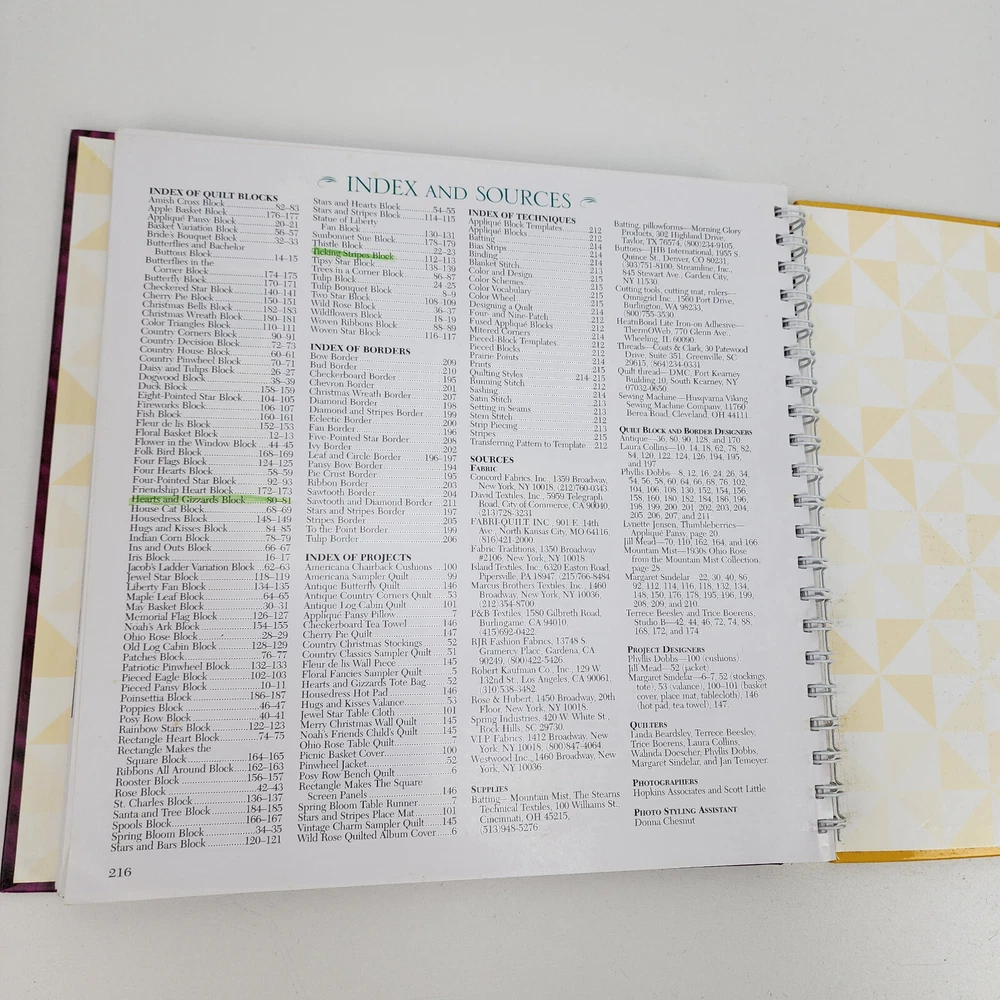 INDEX AND SOURCES
INDEX OF QUILT BLOCKS
Amish Cross Block 82–83
Apple Basket Block 176–177
Appliqué Pansy Block 20–21
Basket Variation Block 56–57
Bride's Bouquet Block 32–33
Butterflies and Bachelor
Buttons Block 14–15
Butterflies in the
Corner Block 174–175
Butterfly Block 170–171
Checkered Star Block 140–141
Cherry Pie Block 150–151
Christmas Bells Block 182–183
Christmas Wreath Block 180–181
Color Triangles Block 110–111
Country Corners Block 90–91
Country Decision Block 72–73
Country House Block 60–61
Country Pinwheel Block 70–71
Daisy and Tulips Block 26–27
Dogwood Block 38–39
Duck Block 158–159
Eight-Pointed Star Block 104–105
Fireworks Block 106–107
Fish Block 160–161
Fleur de lis Block 152–153
Floral Basket Block 12–13
Flower in the Window Block 44–45
Folk Bird Block 168–169
Four Flags Block 124–125
Four Hearts Block 58–59
Four-Pointed Star Block 92–93
Friendship Heart Block 172–173
Hearts and Gizzards Block 80–81
House Cat Block 68–69
Housedress Block 148–149
Hugs and Kisses Block 84–85
Indian Corn Block 78–79
Ins and Outs Block 66–67
Iris Block 16–17
Jacob's Ladder Variation Block 62–63
Jewel Star Block 118–119
Liberty Fan Block 134–135
Maple Leaf Block 64–65
May Basket Block 30–31
Memorial Flag Block 126–127
Noah's Ark Block 154–155
Ohio Rose Block 28–29
Old Log Cabin Block 128–129
Patches Block 76–77
Patriotic Pinwheel Block 132–133
Pieced Eagle Block 102–103
Pieced Pansy Block 10–11
Poinsettia Block 186–187
Poppies Block 46–47
Posy Row Block 40–41
Rainbow Stars Block 122–123
Rectangle Heart Block 74–75
Rectangle Makes the
Square Block 164–165
Ribbons All Around Block 162–163
Rooster Block 156–157
Rose Block 42–43
St. Charles Block 136–137
Santa and Tree Block 184–185
Spools Block 166–167
Spring Bloom Block 34–35
Stars and Bars Block 120–121
Stars and Hearts Block 54–55
Stars and Stripes Block 114–115
Statue of Liberty
Fan Block 130–131
Sunbonnet Sue Block 178–179
Thistle Block 22–23
Ticking Stripes Block 112–113
Tipsy Star Block 138–139
Trees in a Corner Block 86–87
Tulip Block 24–25
Tulip Bouquet Block 8–9
Two Star Block 108–109
Wild Rose Block 36–37
Wildflowers Block 18–19
Woven Ribbons Block 88–89
Woven Star Block 116–117
INDEX OF BORDERS
Bow Border 209
Bud Border 210
Checkerboard Border 195
Chevron Border 201
Christmas Wreath Border 207
Diamond Border 198
Diamond and Stripes Border 199
Eclectic Border 200
Fan Border 196
Five-Pointed Star Border 208
Ivy Border 202
Leaf and Circle Border 196–197
Pansy Bow Border 194
Pie Crust Border 195
Ribbon Border 203
Sawtooth Border 204
Sawtooth and Diamond Border 211
Stars and Stripes Border 197
Stripes Border 205
To the Point Border 199
Tulip Border 206
INDEX OF PROJECTS
Americana Chairback Cushions 100
Americana Sampler Quilt 99
Antique Butterfly Quilt 146
Antique Country Corners Quilt 53
Antique Log Cabin Quilt 101
Appliqué Pansy Pillow 7
Checkerboard Tea Towel 146
Cherry Pie Quilt 147
Country Christmas Stockings 52
Country Classics Sampler Quilt 51
Fleur de lis Wall Piece 145
Floral Fancies Sampler Quilt 5
Hearts and Gizzards Tote Bag 52
Housedress Hot Pad 146
Hugs and Kisses Valance 53
Jewel Star Table Cloth 101
Merry Christmas Wall Quilt 145
Noah's Friends Child's Quilt 145
Ohio Rose Table Quilt 7
Picnic Basket Cover 100
Pinwheel Jacket 52
Posy Row Bench Quilt 6
Rectangle Makes The Square
Screen Panels 146
Spring Bloom Table Runner 7
Stars and Stripes Place Mat 101
Vintage Charm Sampler Quilt 145
Wild Rose Quilted Album Cover 6
INDEX OF TECHNIQUES
Appliqué Block Templates 212
Appliqué Blocks 212
Batting 214
Bias Strips 214
Binding 214
Blanket Stitch 213
Color and Design 215
Color Schemes 215
Color Vocabulary 215
Color Wheel 215
Designing a Quilt 214
Four- and Nine-Patch 212
Fused Appliqué Blocks 214
Mitered Corners
Pieced-Block Templates 212
Pieced Blocks 212
Prairie Points 214
Prints 215
Quilting Styles 214–215
Running Stitch
Sashing
Satin Stitch
Setting in Seams
Stem Stitch
Strip Piecing
Stripes 215
Transferring Pattern to Template 212
SOURCES
FABRIC
Concord Fabrics, Inc. 1359 Broadway,
New York, NY 10018, (212)760-0343.
David Textiles, Inc., 5959 Telegraph
Road, City of Commerce, CA 90040,
(213)728-3231
FABRI-QUILT INC. 901 E. 14th
Ave. North Kansas City, MO 64116,
(816)421-2000
Fabric Traditions, 1350 Broadway
#2106, New York, NY 10018
Island Textiles, Inc., 6320 Easton Road,
Pipersville, PA 18947, (215)766-8484
Marcus Brothers Textiles Inc., 1460
Broadway, New York, NY 10036,
(212)354-8700
P&B Textiles, 1580 Gilbreth Road,
Burlingame, CA 94010,
(415)692-0422
RJR Fashion Fabrics, 13748 S.
Gramercy Place, Gardena, CA
90249, (800)422-5426
Robert Kaufman Co., Inc., 129 W.
132nd St., Los Angeles, CA 90061,
(310)538-3482
Rose & Hubert, 1450 Broadway, 20th
Floor, New York, NY 10018.
Spring Industries, 420 W White St.,
Rock Hills, SC 29730.
V.I.P. Fabrics, 1412 Broadway, New
York, NY 10018, (800)847-4064
Westwood Inc., 1460 Broadway, New
York, NY 10036
SUPPLIES
Batting—Mountain Mist, The Stearns
Technical Textiles, 100 Williams St.,
Cincinnati, OH 45215,
(513)948-5276
Batting, pillowforms—Morning Glory
Products, 302 Highland Drive,
Taylor, TX 76574, (800)234-9105.
Buttons—JHB International, 1955 S.
Quince St., Denver, CO 80231,
(303)751-8100; Streamline, Inc.,
845 Stewart Ave., Garden City,
NY 11530.
Cutting tools, cutting mat, rulers—
Omnigrid Inc. 1560 Port Drive,
Burlington, WA 98233,
(800)755-3530
HeatnBond Lite Iron-on Adhesive—
ThermOWeb, 770 Glenn Ave.,
Wheeling, IL 60090.
Threads—Coats & Clark, 30 Patewood
Drive, Suite 351, Greenville, SC
29615, (864)234-0331
Quilt thread—DMC, Port Kearney
Building 10, South Kearney, NJ
07032-0650
Sewing Machine—Husqvarna Viking
Sewing Machine Company, 11760
Berea Road, Cleveland, OH 44111.
QUILT BLOCK AND BORDER DESIGNERS
Antique—36, 80, 90, 128, and 170
Laura Collins—10, 14, 18, 62, 78, 82,
84, 120, 122, 124, 126, 194, 195,
and 197
Phyllis Dobbs—8, 12, 16, 24, 26, 34,
54, 56, 58, 60, 64, 66, 68, 76, 102,
104, 106, 108, 130, 152, 154, 156,
158, 160, 180, 182, 184, 186, 196,
198, 199, 200, 201, 202, 203, 204,
205, 206, 207, and 211
Lynette Jensen, Thimbleberries—
Appliqué Pansy, page 20.
Jill Mead—70, 110, 162, 164, and 166.
Mountain Mist—1930s Ohio Rose
from the Mountain Mist Collection,
page 28.
Margaret Sindelar—22, 30, 40, 86,
92, 112, 114, 116, 118, 132, 134,
148, 150, 176, 178, 195, 196, 199,
208, 209, and 210.
Terrece Beesley and Trice Boerens,
Studio B—42, 44, 46, 72, 74, 88,
168, 172, and 174
PROJECT DESIGNERS
Phyllis Dobbs—100 (cushions).
Jill Mead—52 (jacket)
Margaret Sindelar—6–7, 52 (stockings,
tote), 53 (valance), 100–101 (basket
cover, place mat, tablecloth), 146
(hot pad, tea towel), 147.
QUILTERS
Linda Beardsley, Terrece Beesley,
Trice Boerens, Laura Collins,
Walinda Doescher, Phyllis Dobbs,
Margaret Sindelar, and Jan Temeyer.
PHOTOGRAPHERS
Hopkins Associates and Scott Little
PHOTO STYLING ASSISTANT
Donna Chesnut
216